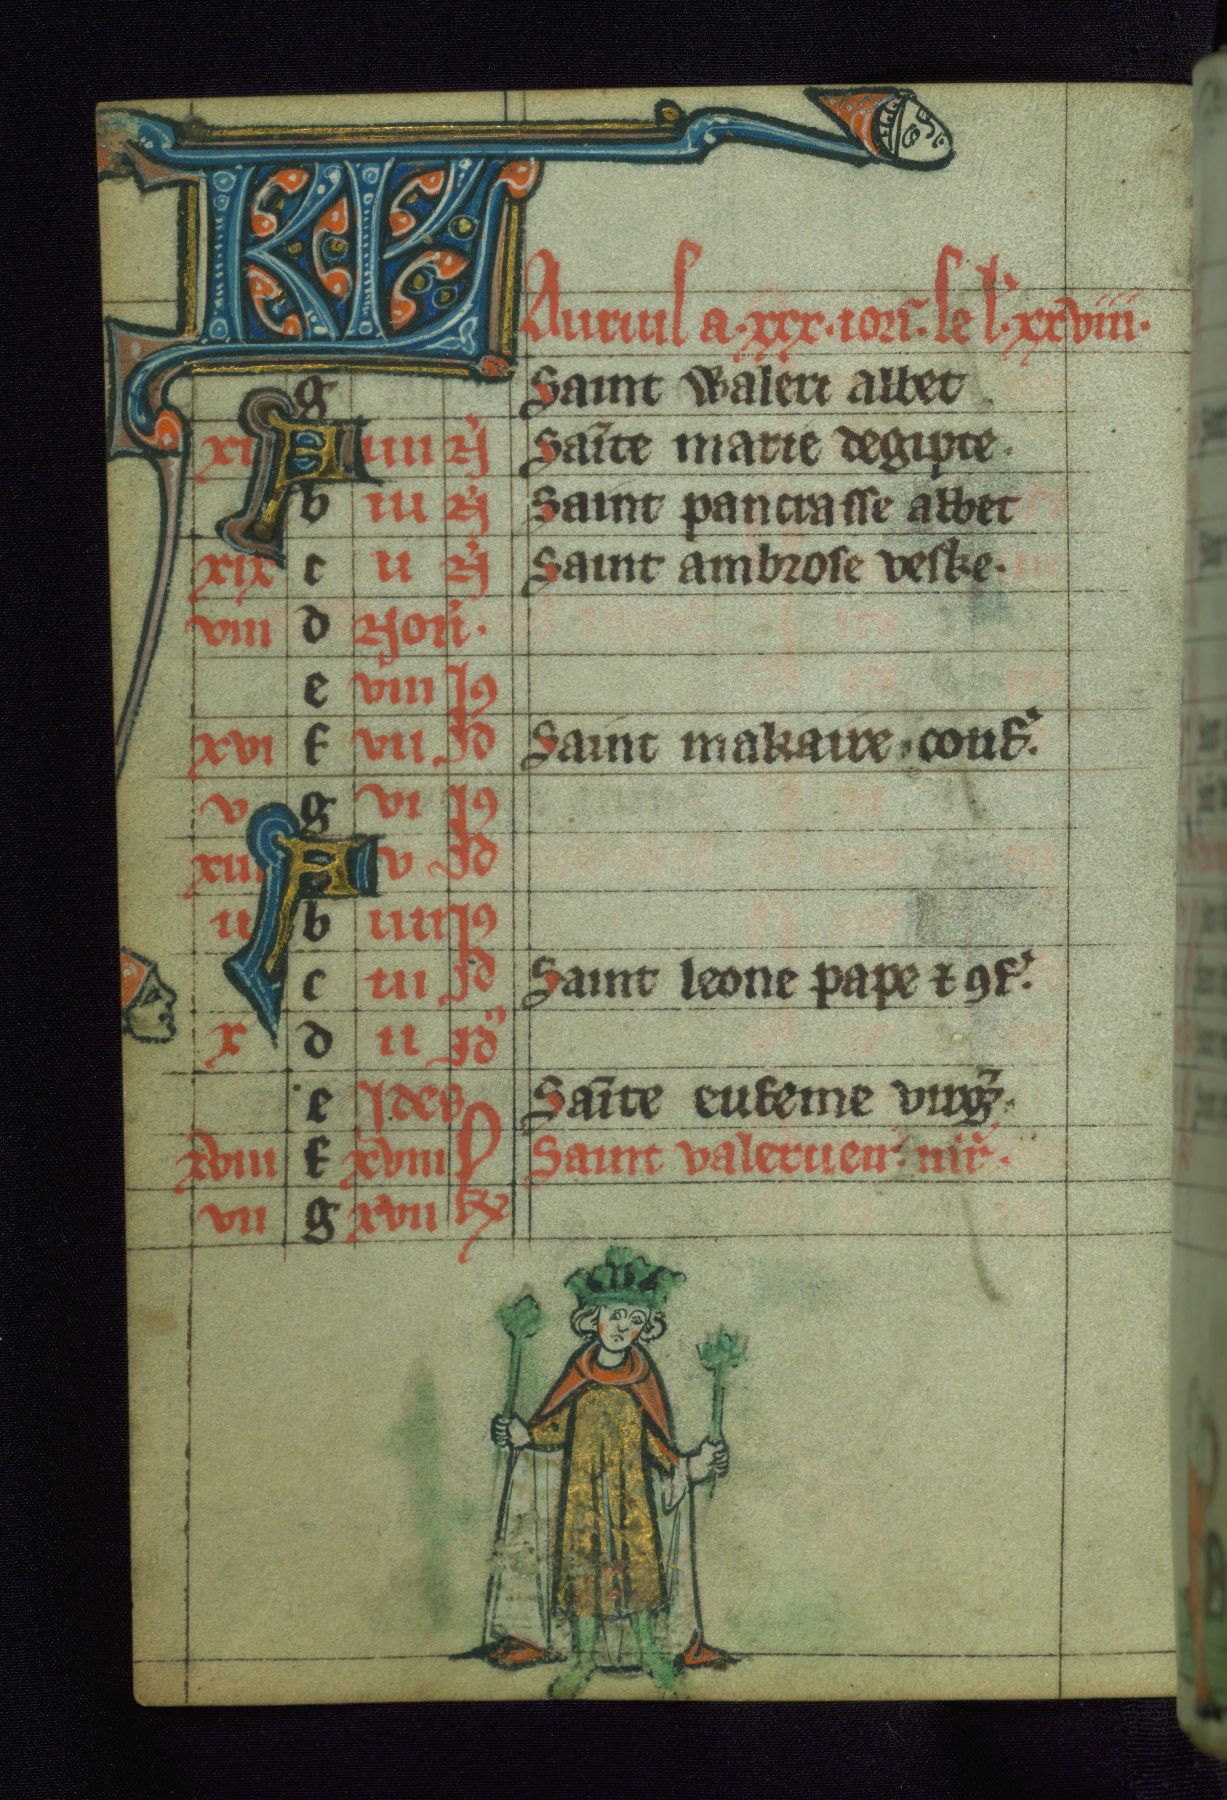 KL Auriul a·xxx·iorꝭ·le l'·xxviii·
g Saint Waleri abbet
xi A iiii ꝶ Sai̅te marie degipte·
b iii ꝶ Saint pancrasse abbet
xix c ii ꝶ Saint ambrose veske·
viii d Non'·
e viii Id
xvi f vii Id Saint makaire conf'·
v g vi Id
xiii A v Id
ii b iiii Id
c iii Id Saint leone pape ⁊ ꝯf'·
x d ii Id
e Ides Sai̅te eufemie virg̅·
xviii f xviii Saint valerien·
vii g xvii kl